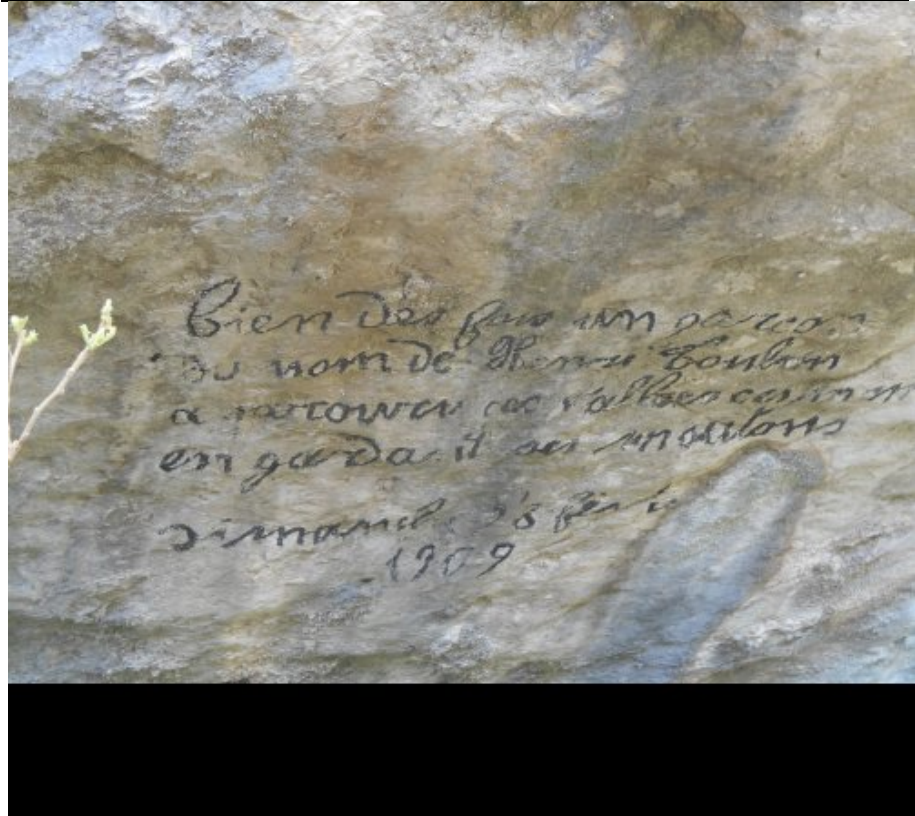 bien des fois un garçon
du nom de Henri Toulon
a parcouru ces
en garda it ses moutons
dimanche
1909